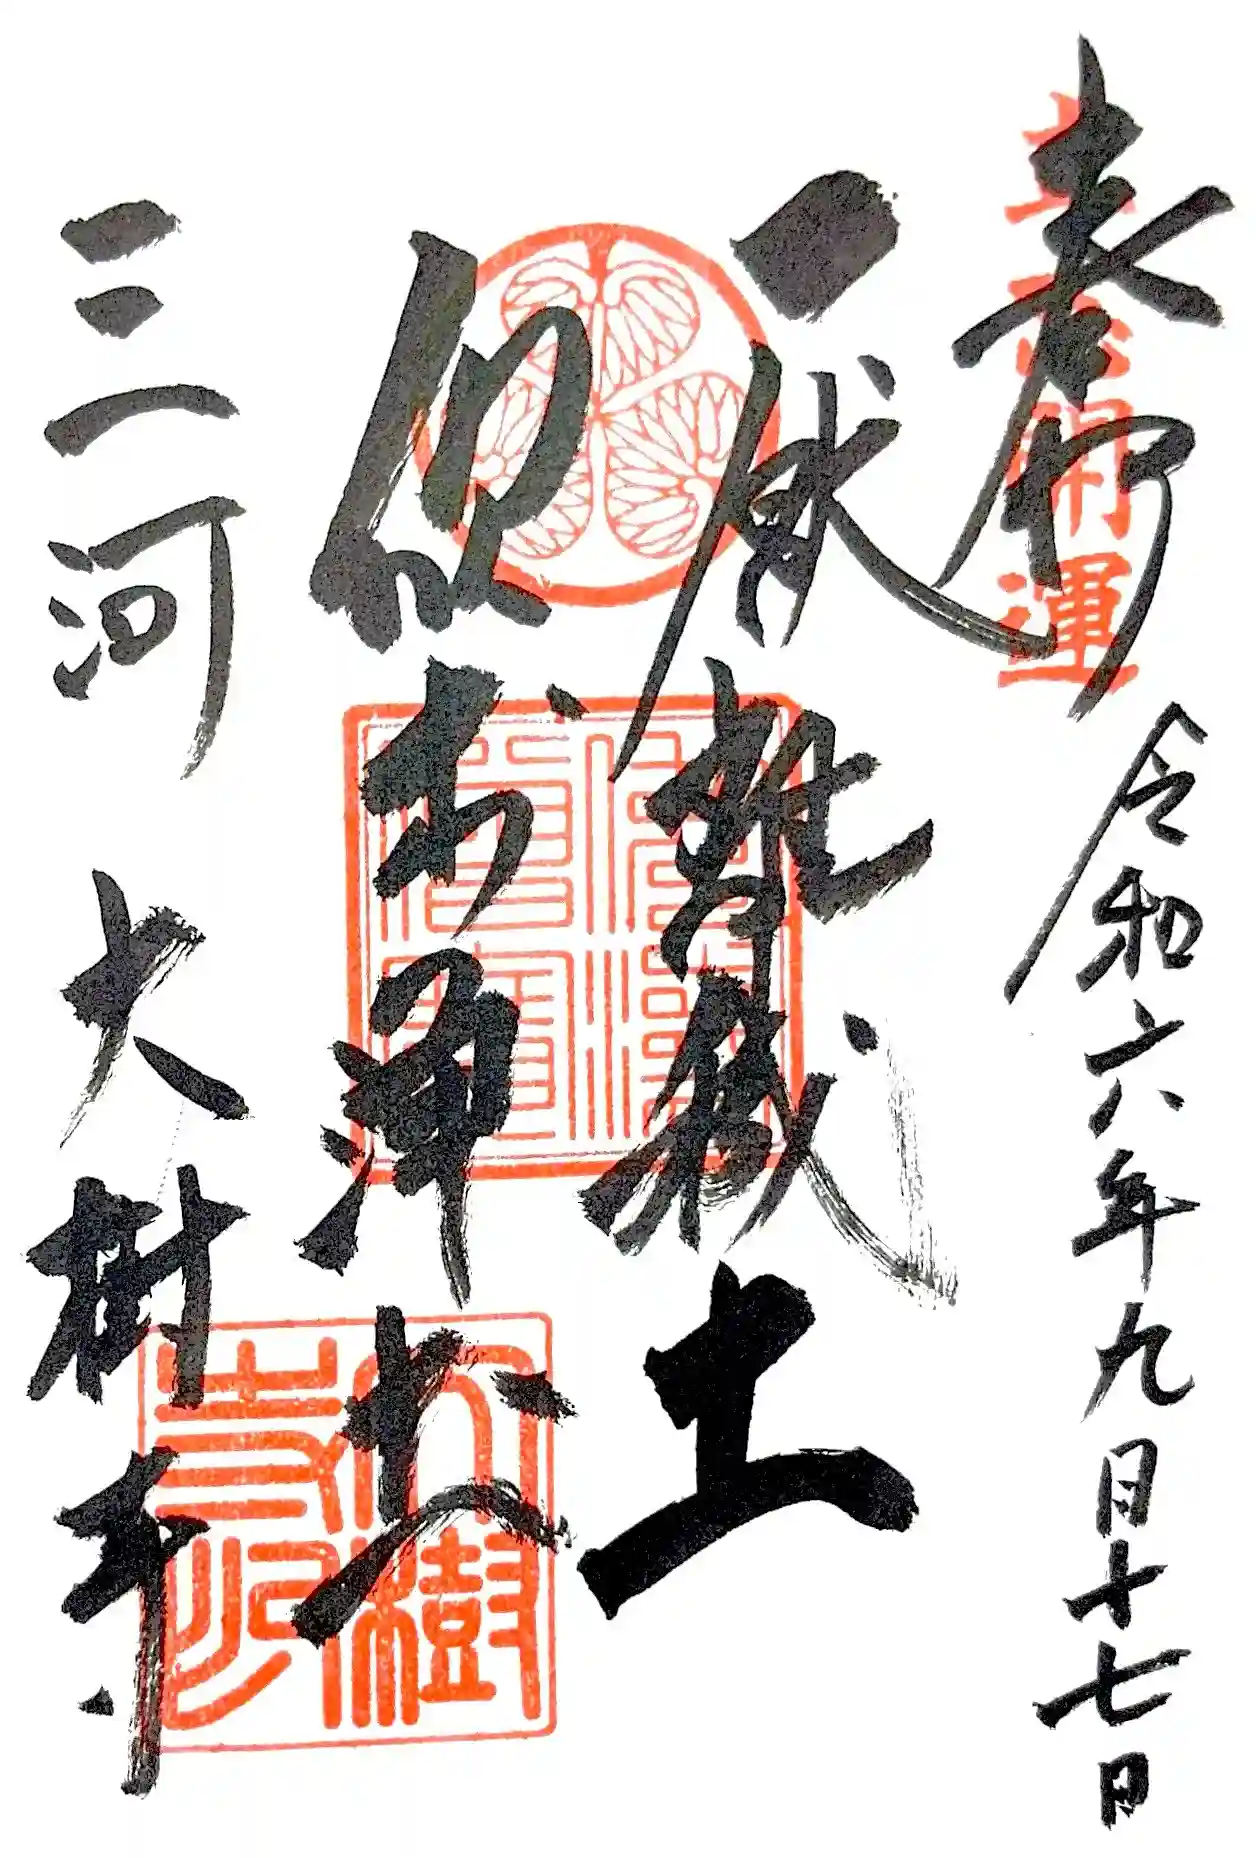 奉拝
立志開運
令和六年九月十七日
厭離穢土
欣求浄土
佛法僧寶
三河 大樹寺
大樹寺印